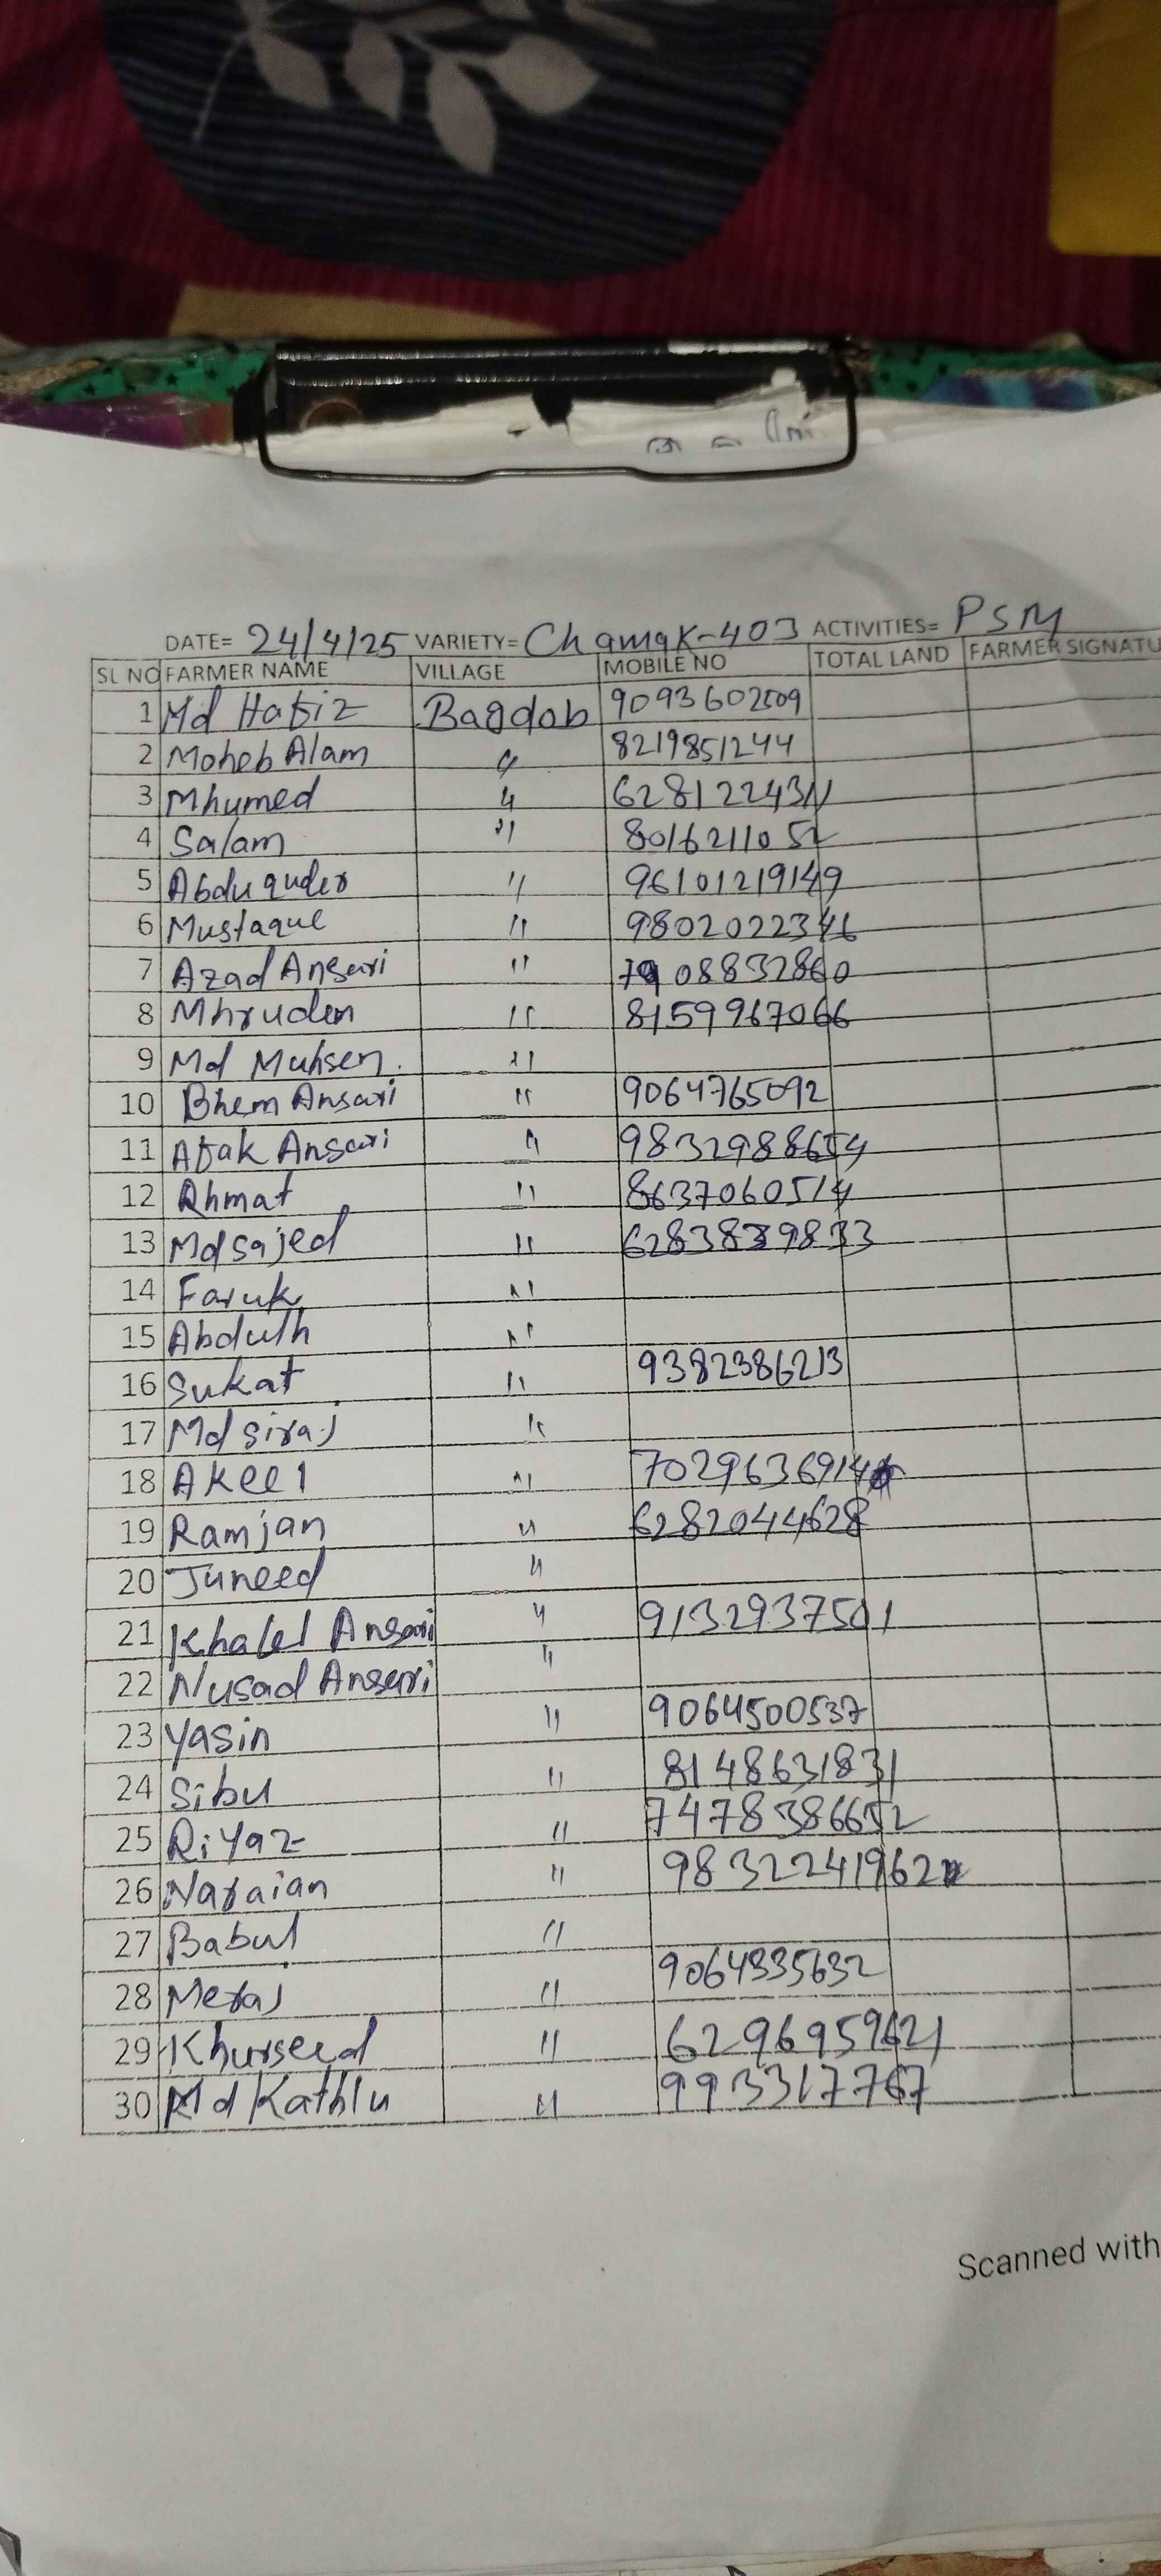 DATE= 24/4/25 VARIETY= Chamak-403 ACTIVITIES= PSM
SL NO FARMER NAME VILLAGE MOBILE NO TOTAL LAND FARMER SIGNATU
1 Md Hafiz Bagdob 9093602509
2 Moheb Alam " 8219851244
3 Mhumed " 628122431
4 Salam " 8016211052
5 Abduquder " 96101219149
6 Mustaque " 9802022346
7 Azad Ansari " 7908832860
8 Mhruden " 8159967066
9 Md Muhsen. "
10 Bhem Ansari " 9064765092
11 Afak Ansari " 9832988654
12 Rhmat " 8637060514
13 Md sajed " 6283839833
14 Faruk "
15 Abdulh "
16 Sukat " 9382386213
17 Md siraj "
18 Akeel " 7029636914
19 Ramjan " 6282044628
20 Juneed "
21 Khalel Ansari " 9132937501
22 Nusad Ansari "
23 Yasin " 9064500537
24 Sibu " 8148631831
25 Riyaz " 7478386652
26 Naraian " 9832241962
27 Babul "
28 Meraj " 9064335632
29 Khurseed " 6296959621
30 Md Kathlu " 993317767
Scanned with